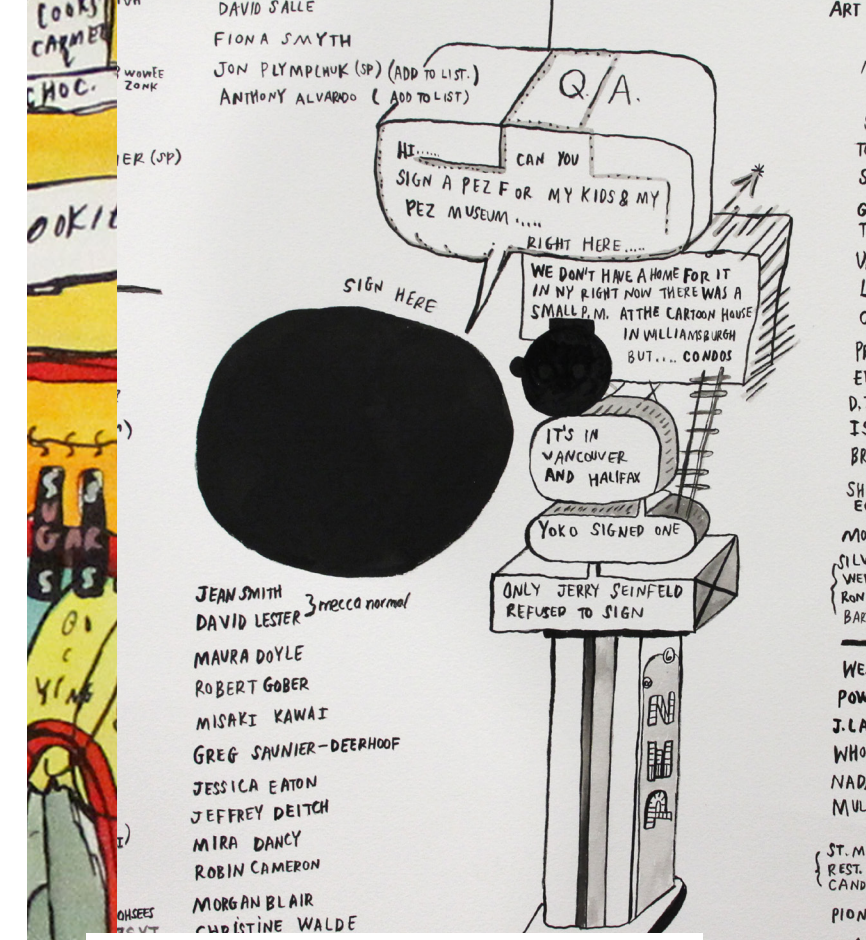 COOKS
CARMEL
CHOC.
OOKIE
SUGARS
S
S
WOWEE
ZONK
ER (SP)
OHSEES
DAVID SALLE
FIONA SMYTH
JON PLYMPCHUK (SP) (ADD TO LIST.)
ANTHONY ALVARADO ( ADD TO LIST)
Q. A.
HI...... CAN YOU
SIGN A PEZ FOR MY KIDS & MY
PEZ MUSEUM .....
RIGHT HERE.....
WE DON'T HAVE A HOME FOR IT
IN NY RIGHT NOW THERE WAS A
SMALL P.M. AT THE CARTOON HOUSE
IN WILLIAMSBURGH
BUT.... CONDOS
SIGN HERE
IT'S IN
VANCOUVER
AND HALIFAX
YOKO SIGNED ONE
ONLY JERRY SEINFELD
REFUSED TO SIGN
JEAN SMITH
DAVID LESTER
mecca normal
MAURA DOYLE
ROBERT GOBER
MISAKI KAWAI
GREG SAUNIER-DEERHOOF
JESSICA EATON
JEFFREY DEITCH
MIRA DANCY
ROBIN CAMERON
MORGAN BLAIR
CHRISTINE WALDE
ART
D.
IS
BR
SH
MO
SILV
WE
RON
BAR
WE
POW
J.LA
WHO
NAD
MUL
ST. M
REST.
CAND
PION